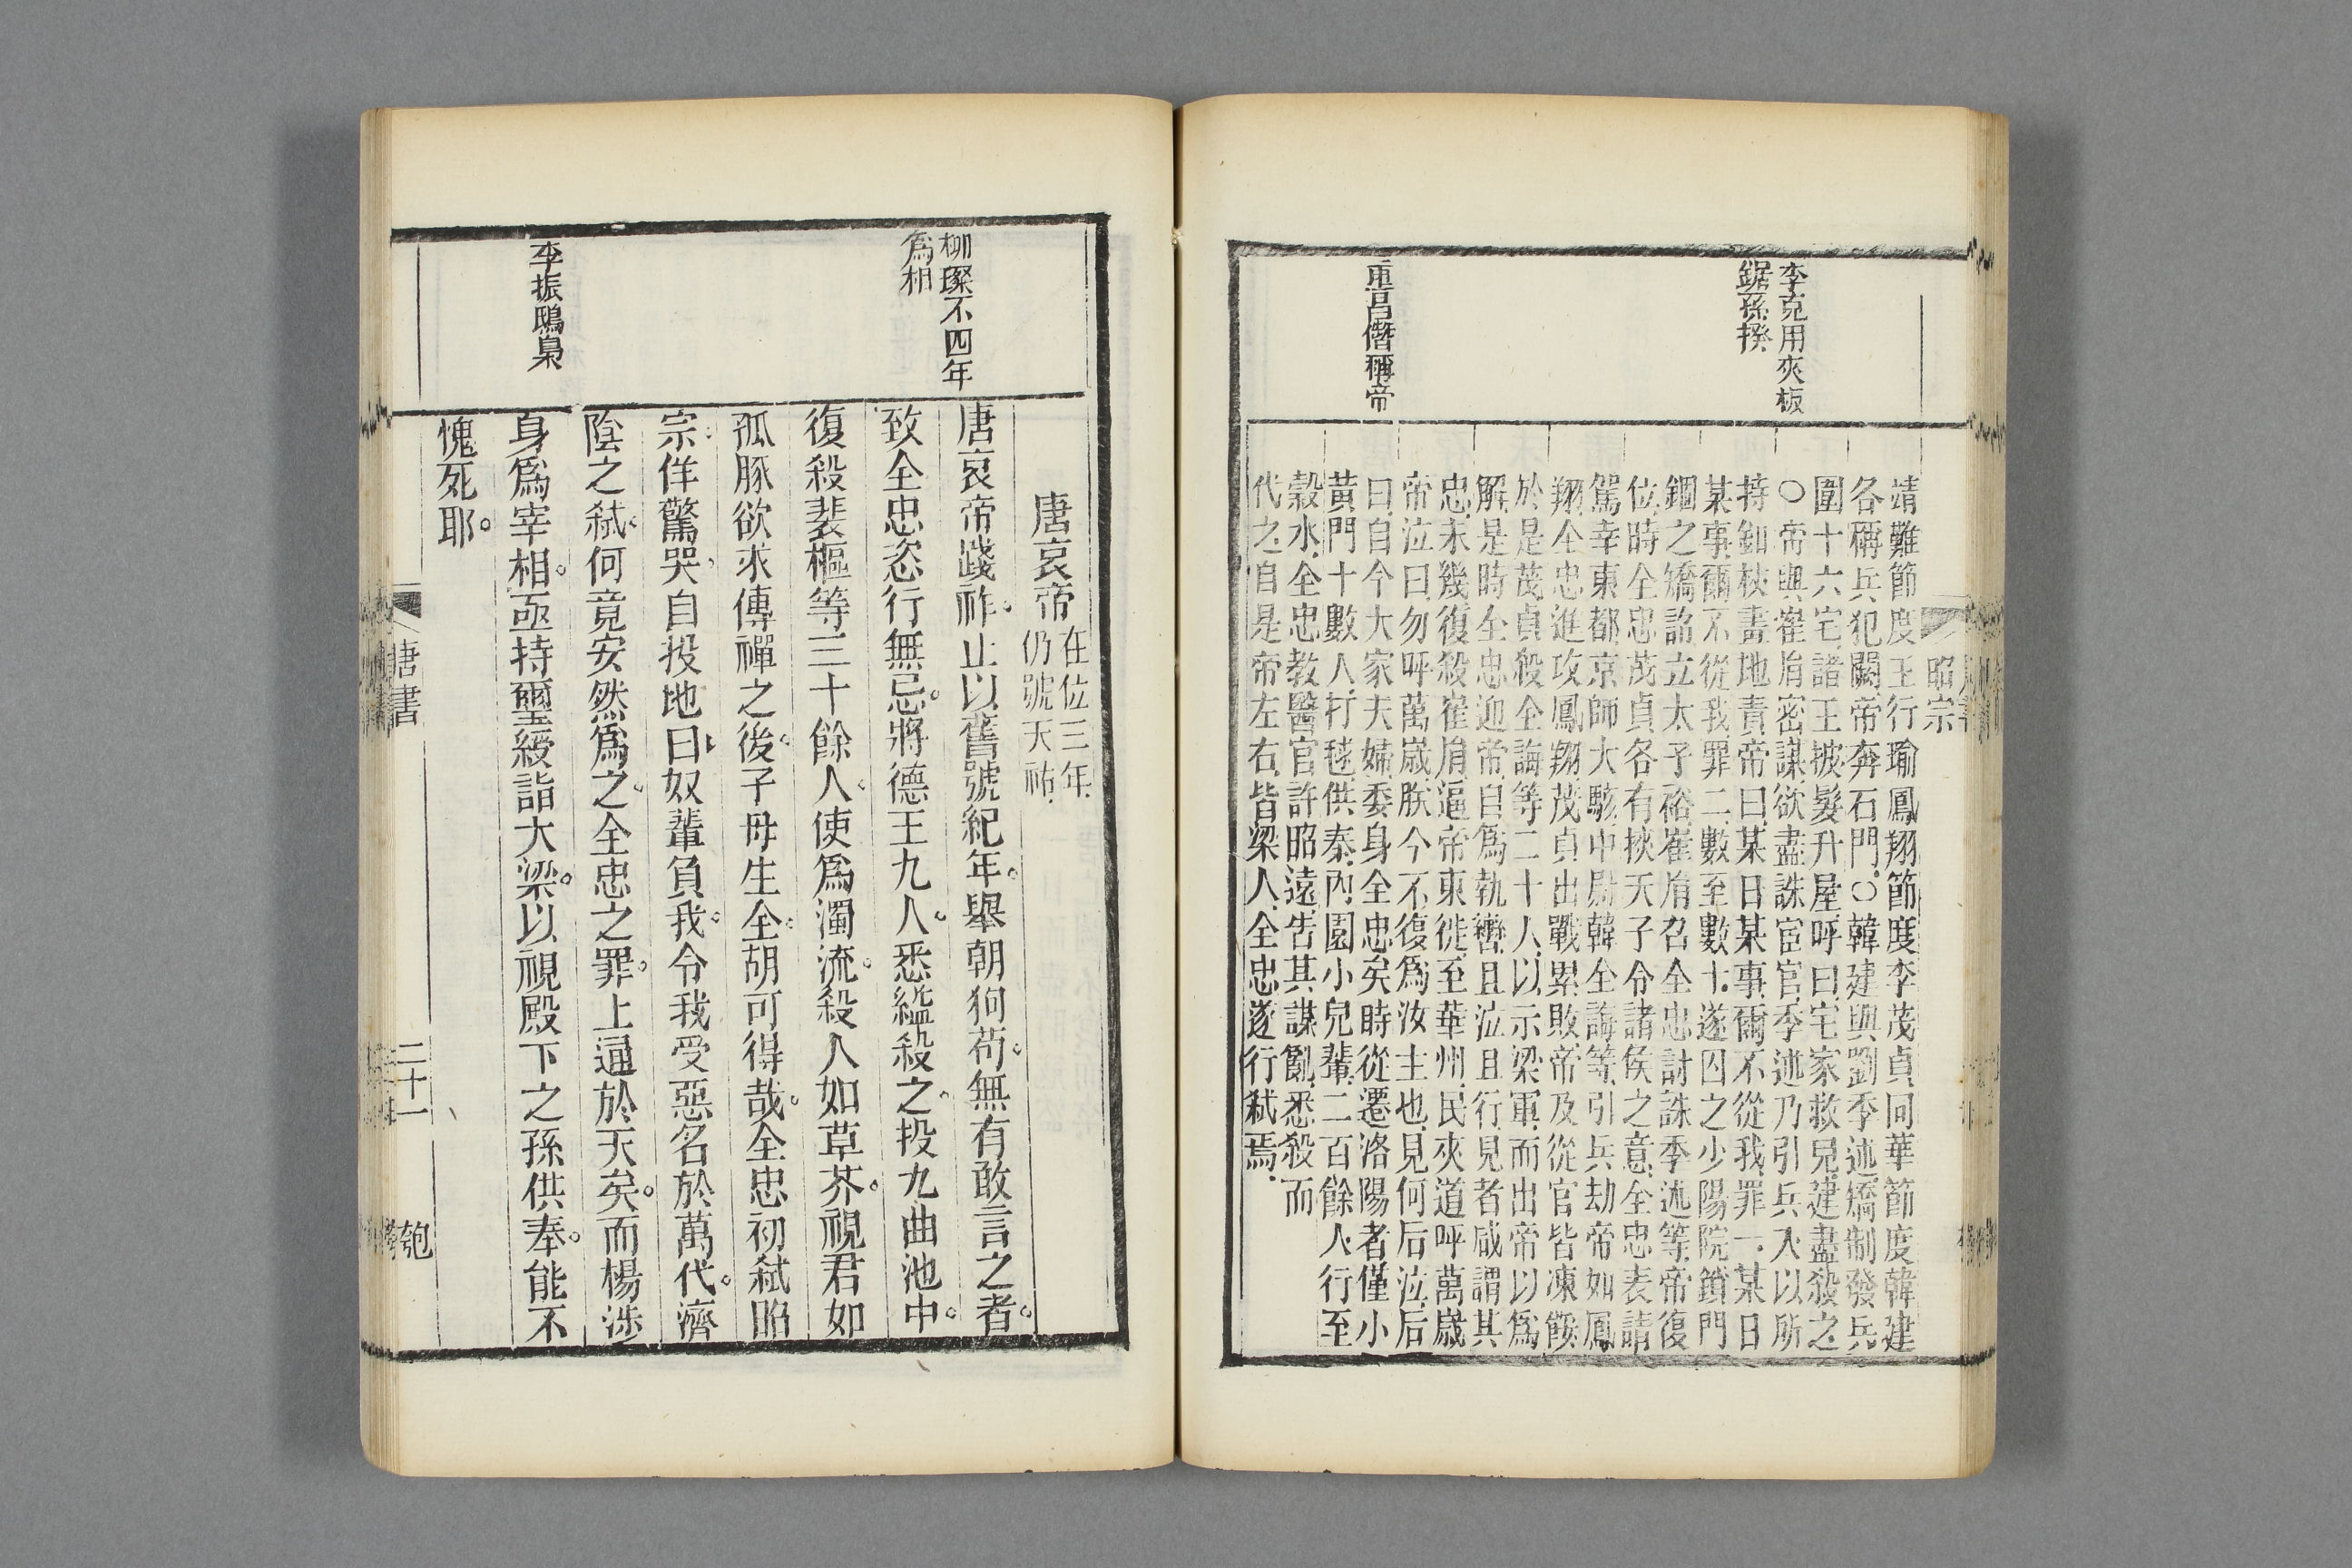 李克用夾板
鋸孫揆
董昌僭稱帝
昭宗
靖難節度王行瑜鳳翔節度李茂貞同華節度韓建
各稱兵犯闕帝奔石門○韓建與劉季述矯制發兵
圍十六宅諸王披髮升屋呼曰宅家救兒建盡殺之
○帝與崔胤密謀欲盡誅宦官季述乃引兵入以所
持釦杖畫地責帝曰某日某事爾不從我罪一某日
某事爾不從我罪二數至數十遂囚之少陽院鎖門
錮之矯詔立太子裕崔胤召全忠討誅季述等帝復
位時全忠茂貞各有挾天子令諸侯之意全忠表請
駕幸東都京師大駭中尉韓全誨等引兵劫帝如鳳
翔全忠進攻鳳翔茂貞出戰累敗帝及從官皆凍餒
於是茂貞殺全誨等二十人以示梁軍而出帝以爲
解是時全忠迎帝自爲執轡且泣且行見者咸謂其
忠未幾復殺崔胤逼帝東徙至華州民夾道呼萬歲
帝泣曰勿呼萬歲朕今不復爲汝主也見何后泣后
曰自今大家夫婦委身全忠矣時從遷洛陽者僅小
黃門十數人打毬供奉內園小兒輩二百餘人行至
穀水全忠教醫官許昭遠告其謀亂悉殺而
代之自是帝左右皆梁人全忠遂行弒焉
柳璨不四年
爲相
李振鴟梟
唐哀帝在位三年
仍號天祐
唐哀帝踐祚止以舊號紀年舉朝狗苟無有敢言之者
致全忠恣行無忌將德王九人悉縊殺之投九曲池中
復殺裴樞等三十餘人使爲濁流殺人如草芥視君如
孤豚欲求傳禪之後子母生全胡可得哉全忠初弒昭
宗佯驚哭自投地曰奴輩負我令我受惡名於萬代濟
陰之弒何竟安然爲之全忠之罪上逼於天矣而楊涉
身爲宰相亟持璽綬詣大梁以視殿下之孫供奉能不
愧死耶
唐書
二十一